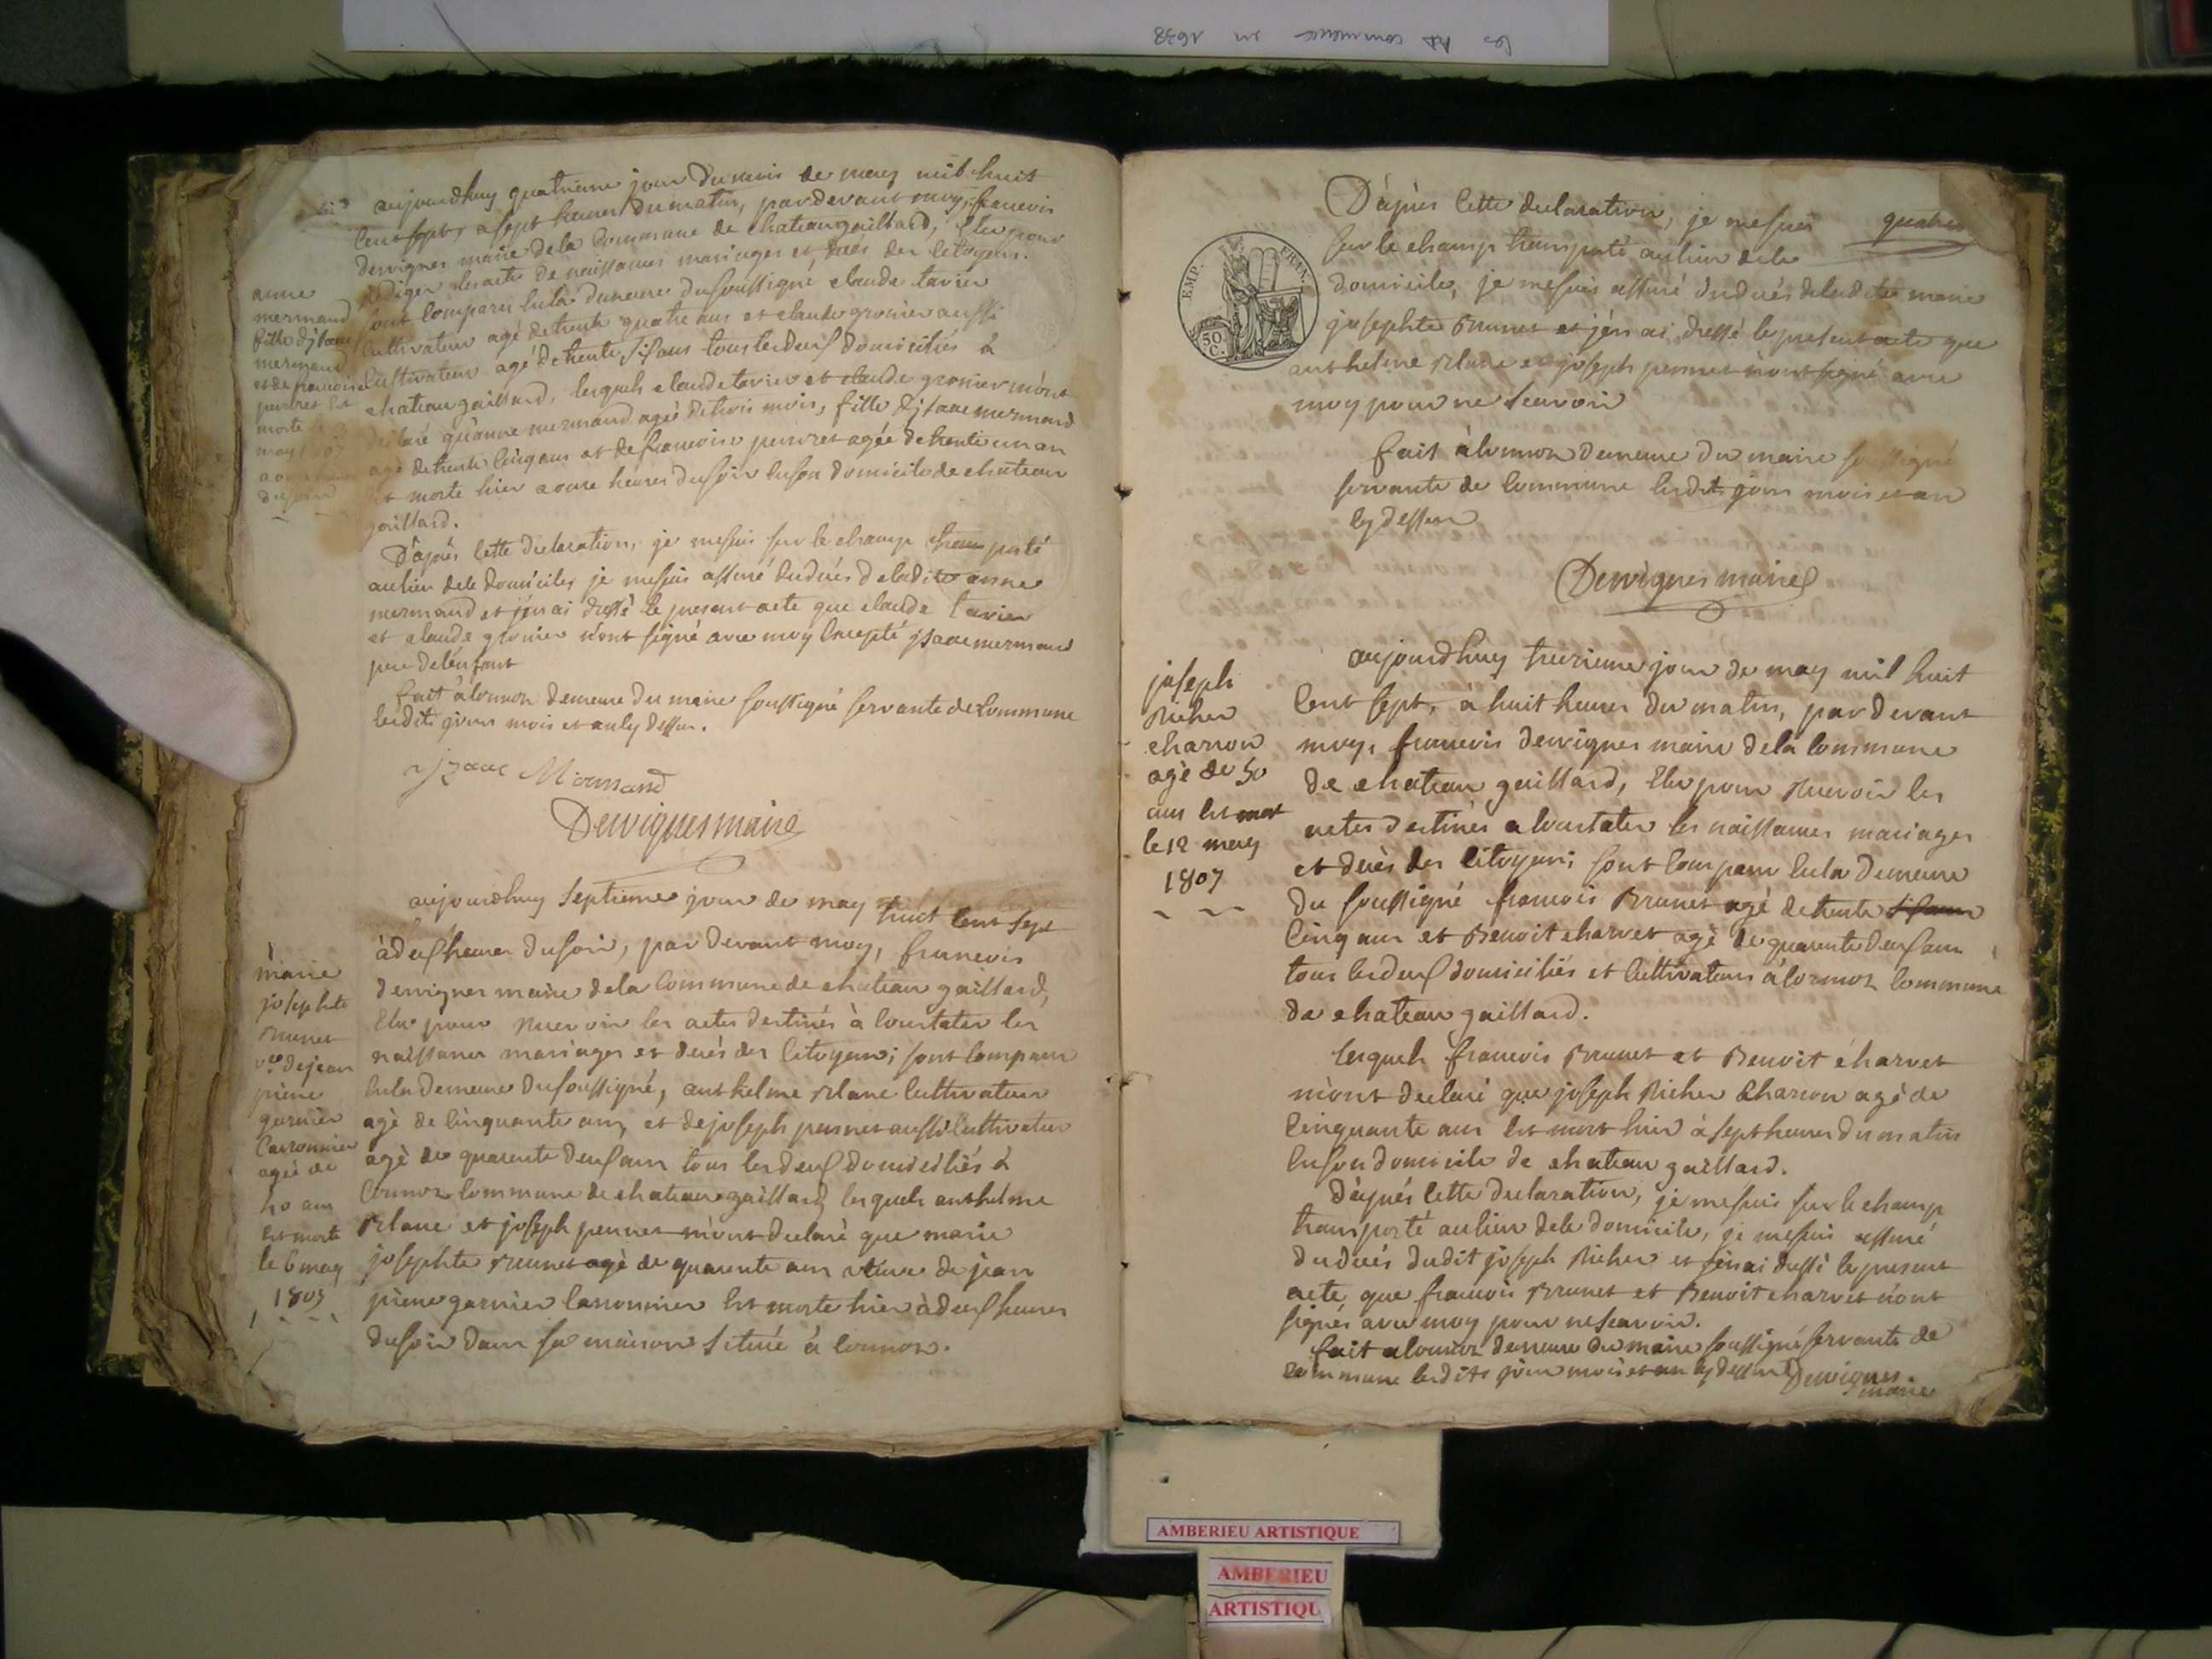 les AD commence en 1638
aujourdhuy quatrieme jour du mois de may mil huit
cent sept, a sept heures du matin, pardevant moy, francois
dervignes maire de la commune de chateaugaillard, elu pour
rediger les acte de naissances mariages et deces des citoyens.
sont comparu en la demeure du soussigné claude tavier
cultivateur agé de trente quatre ans et claude gronier aussi
cultivateur agé de trente six ans tous les deux domiciliés à
chateaugaillard, lesquels claude tavier et claude gronier m'ont
declaré qu'anne mermand agée de trois mois, fille d'jsaac mermand
agé de trente cinq ans et de francoise perret agée de trente un an
est morte hier a onze heures du soir en son domicile de chateau
gaillard.
D'après cette declaration, je me suis sur le champ transporté
au lieu de le domicile, je me suis assuré du decés de ladite anne
mermand et j'en ai dressé le present acte que claude tavier
et claude gronier n'ont signé avec moy excepté jsaac mermand
pere de l'enfant
fait à lormoz demeure du maire soussigné servante de commune
lesdits jours mois et an cy dessus.
anne
mermand
fille d'jsaac
mermand
et de francoise
perret est
morte le 3
may 1807
a onze heures
du soir
jzaac Mermand
Dervignes maire
aujourdhuy septieme jour de may
huit cent sept
à deux heures du soir, par devant moy, francois
dervignes maire de la commune de chateau gaillard,
elu pour recevoir les actes destinés à constater les
naissances mariages et decés des citoyens; sont comparu
en la demeure du soussigné, anthelme blanc cultivateur
agé de cinquante ans, et de joseph pennet aussi cultivateur
agé de quarante deux ans tous les deux domiciliés à
lormoz commune de chateau gaillard lesquels anthelme
blanc et joseph pennet m'ont declaré que marie
josephte brunet agé de quarante ans veuve de jean
pierre garnier cassonnier est morte hier à deux heures
du soir dans sa maison située à lormoz.
marie
josephte
brunet
v.ve de jean
pierre
garnier
cassonnier
agée de
40 ans
est morte
le 6 may
1807
quatre
EMP. FRAN.
50 C.
D'après cette declaration, je me suis
sur le champ transporté au lieu de le
domicile, je me suis assuré du decés de ladite marie
josephte brunet et j'en ai dressé le present acte que
anthelme blanc et joseph pennet n'ont signé avec
moy pour ne scavoir
fait à lormoz demeure du maire soussigné
servante de commune lesdits jours mois et an
cy dessus
Dervignes maire
aujourdhuy treizieme jour de may mil huit
cent sept, à huit heures du matin, par devant
moy, francois dervignes maire de la commune
de chateau gaillard, elu pour recevoir les
actes destinés a constater les naissances mariages
et decès des citoyens; sont comparu en la demeure
du soussigné francois brunet agé de trente six ans
cinq ans et Benoit charvet agé de quarante deux ans
tous les deux domiciliés et cultivateurs à lormoz commune
de chateau gaillard.
lesquels francois brunet et Benoit charvet
m'ont declaré que joseph Richer charron agé de
cinquante ans est mort hier à sept heures du matin
en son domicile de chateau gaillard.
D'après cette declaration, je me suis sur le champ
transporté au lieu de le domicile, je me suis assuré
du decés dudit joseph Richer et j'en ai dressé le present
acte que francois brunet et Benoit charvet n'ont
signés avec moy pour ne scavoir.
fait a lormoz demeure du maire soussigné servante de
commune lesdits jour mois et an cy dessus Dervignes
maire
joseph
Richer
charron
agé de 50
ans est mort
le 12 may
1807
AMBERIEU ARTISTIQUE
AMBERIEU
ARTISTIQU